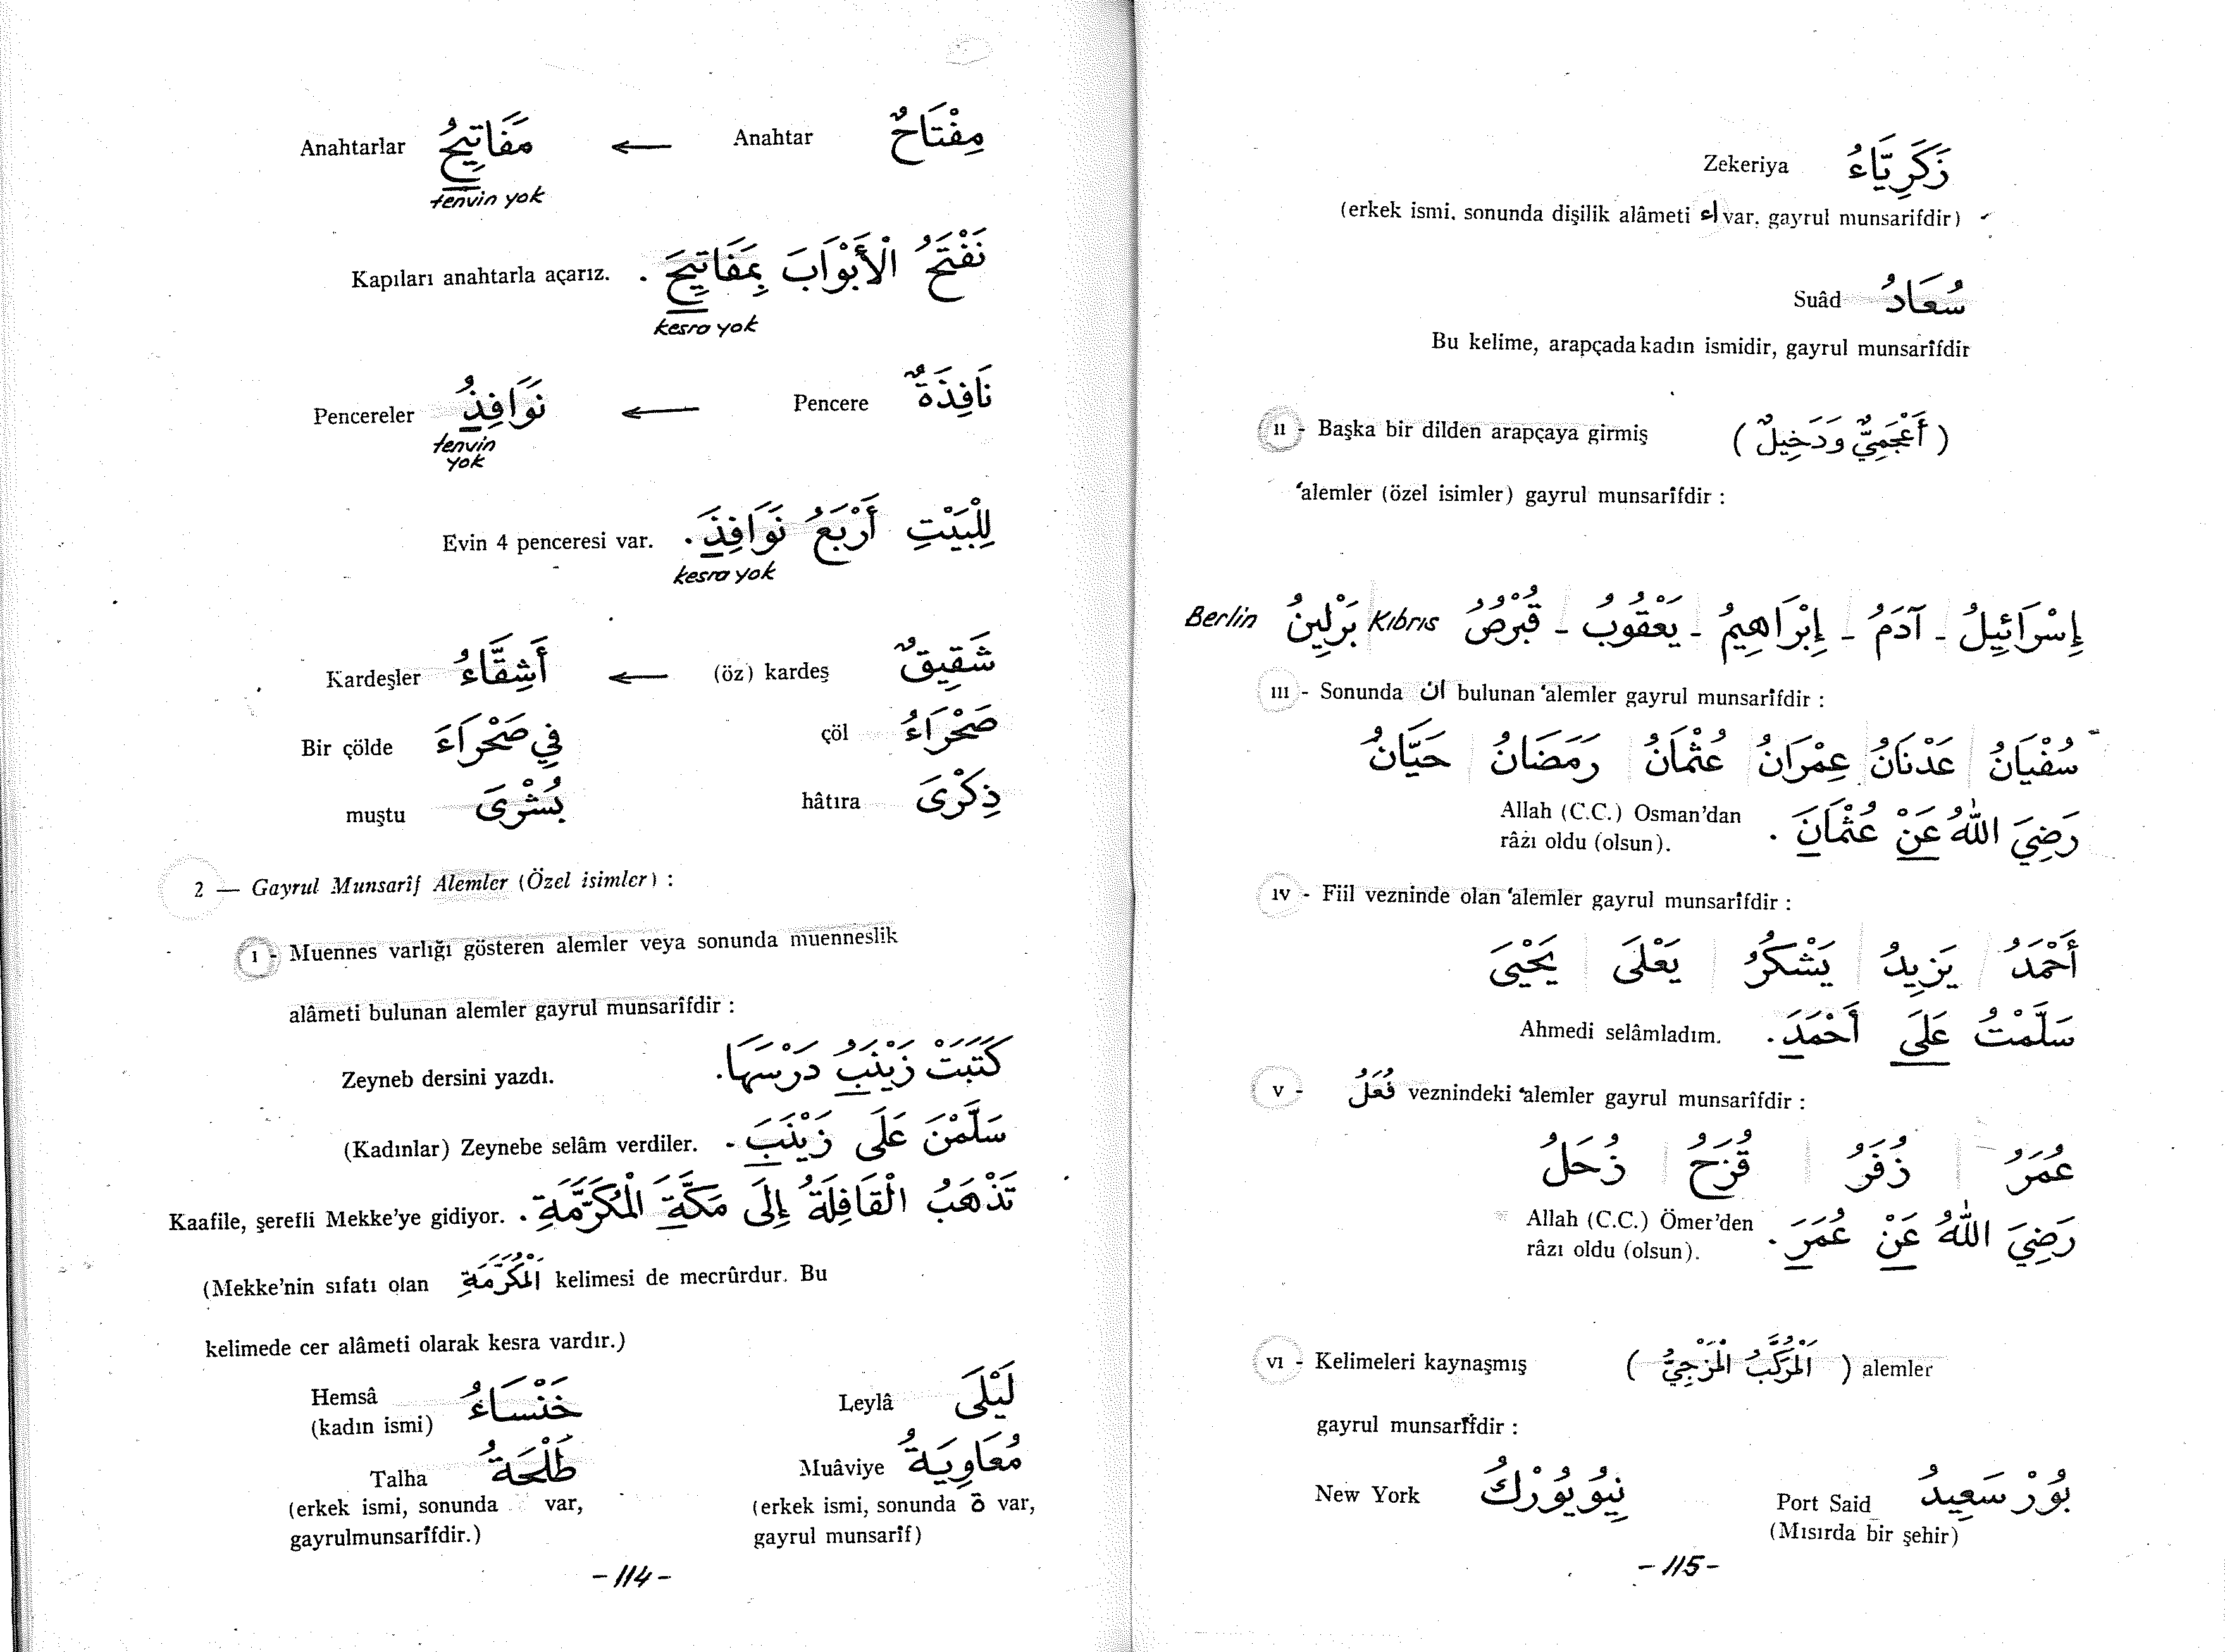 مِفْتَاحٌ Anahtar ← مَفَاتِيحُ Anahtarlar
tenvin yok
نَفْتَحُ الْأَبْوَابَ بِمَفَاتِيحَ . Kapıları anahtarla açarız.
kesra yok
نَافِذَةٌ Pencere ← نَوَافِذُ Pencereler
tenvin
yok
لِلْبَيْتِ أَرْبَعُ نَوَافِذَ . Evin 4 penceresi var.
kesra yok
شَقِيقٌ (öz) kardeş ← أَشِقَّاءُ Kardeşler
صَحْرَاءُ çöl فِي صَحْرَاءَ Bir çölde
ذِكْرَى hâtıra بُشْرَى muştu
2 — Gayrul Munsarîf Alemler (Özel isimler) :
ı - Muennes varlığı gösteren alemler veya sonunda muenneslik
alâmeti bulunan alemler gayrul munsarîfdir :
كَتَبَتْ زَيْنَبُ دَرْسَهَا. Zeyneb dersini yazdı.
سَلَّمْنَ عَلَى زَيْنَبَ . (Kadınlar) Zeynebe selâm verdiler.
تَذْهَبُ الْقَافِلَةُ إِلَى مَكَّةَ الْمُكَرَّمَةِ . Kaafile, şerefli Mekke'ye gidiyor.
(Mekke'nin sıfatı olan اَلْمُكَرَّمَةِ kelimesi de mecrûrdur. Bu
kelimede cer alâmeti olarak kesra vardır.)
لَيْلَى Leylâ خَنْسَاءُ Hemsâ
(kadın ismi)
مُعَاوِيَةُ Muâviye طَلْحَةُ Talha
(erkek ismi, sonunda var, (erkek ismi, sonunda ة var,
gayrulmunsarîfdir.) gayrul munsarîf)
-114-
زَكَرِيَّاءُ Zekeriya
(erkek ismi, sonunda dişilik alâmeti اء var, gayrul munsarifdir)
سُعَادُ Suâd
Bu kelime, arapçada kadın ismidir, gayrul munsarîfdir
ıı - Başka bir dilden arapçaya girmiş ( أَعْجَمِيٌّ وَدَخِيلٌ )
'alemler (özel isimler) gayrul munsarîfdir :
إِسْرَائِيلُ - آدَمُ - إِبْرَاهِيمُ - يَعْقُوبُ - قُبْرُصُ Kıbrıs بَرْلِينُ Berlin
ııı - Sonunda ان bulunan 'alemler gayrul munsarîfdir :
سُفْيَانُ عَدْنَانُ عِمْرَانُ عُثْمَانُ رَمَضَانُ حَيَّانُ
رَضِيَ اللهُ عَنْ عُثْمَانَ . Allah (C.C.) Osman'dan
râzı oldu (olsun).
ıv - Fiil vezninde olan 'alemler gayrul munsarîfdir :
أَحْمَدُ يَزِيدُ يَشْكُرُ يَعْلَى يَحْيَى
سَلَّمْتُ عَلَى أَحْمَدَ . Ahmedi selâmladım.
v - فُعَلُ veznindeki 'alemler gayrul munsarîfdir :
عُمَرُ زُفَرُ قُزَحُ زُحَلُ
رَضِيَ اللهُ عَنْ عُمَرَ . Allah (C.C.) Ömer'den
râzı oldu (olsun).
vı - Kelimeleri kaynaşmış ( اَلْمُرَكَّبُ الْمَزْجِيُّ ) alemler
gayrul munsarîfdir :
بُورْ سَعِيدُ Port Said نِيُويُورْكُ New York
(Mısırda bir şehir)
-115-